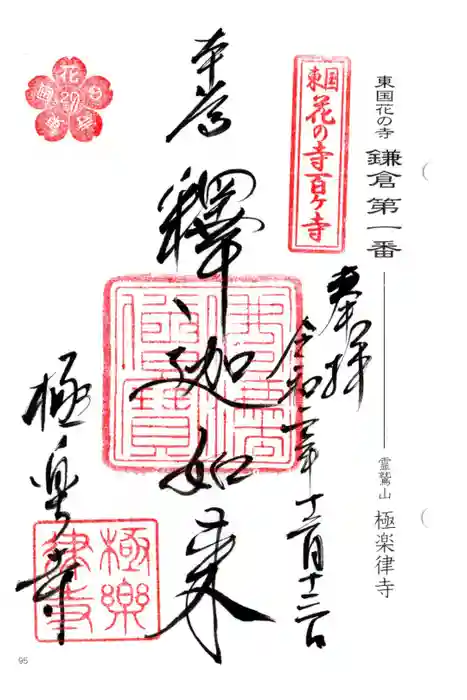 東国花の寺 鎌倉第一番
霊鷲山 極楽律寺
東国
花の寺百ヶ寺
奉拝
令和二年十二月十二日
本尊
釋迦如来
極楽寺
極樂
律寺
95